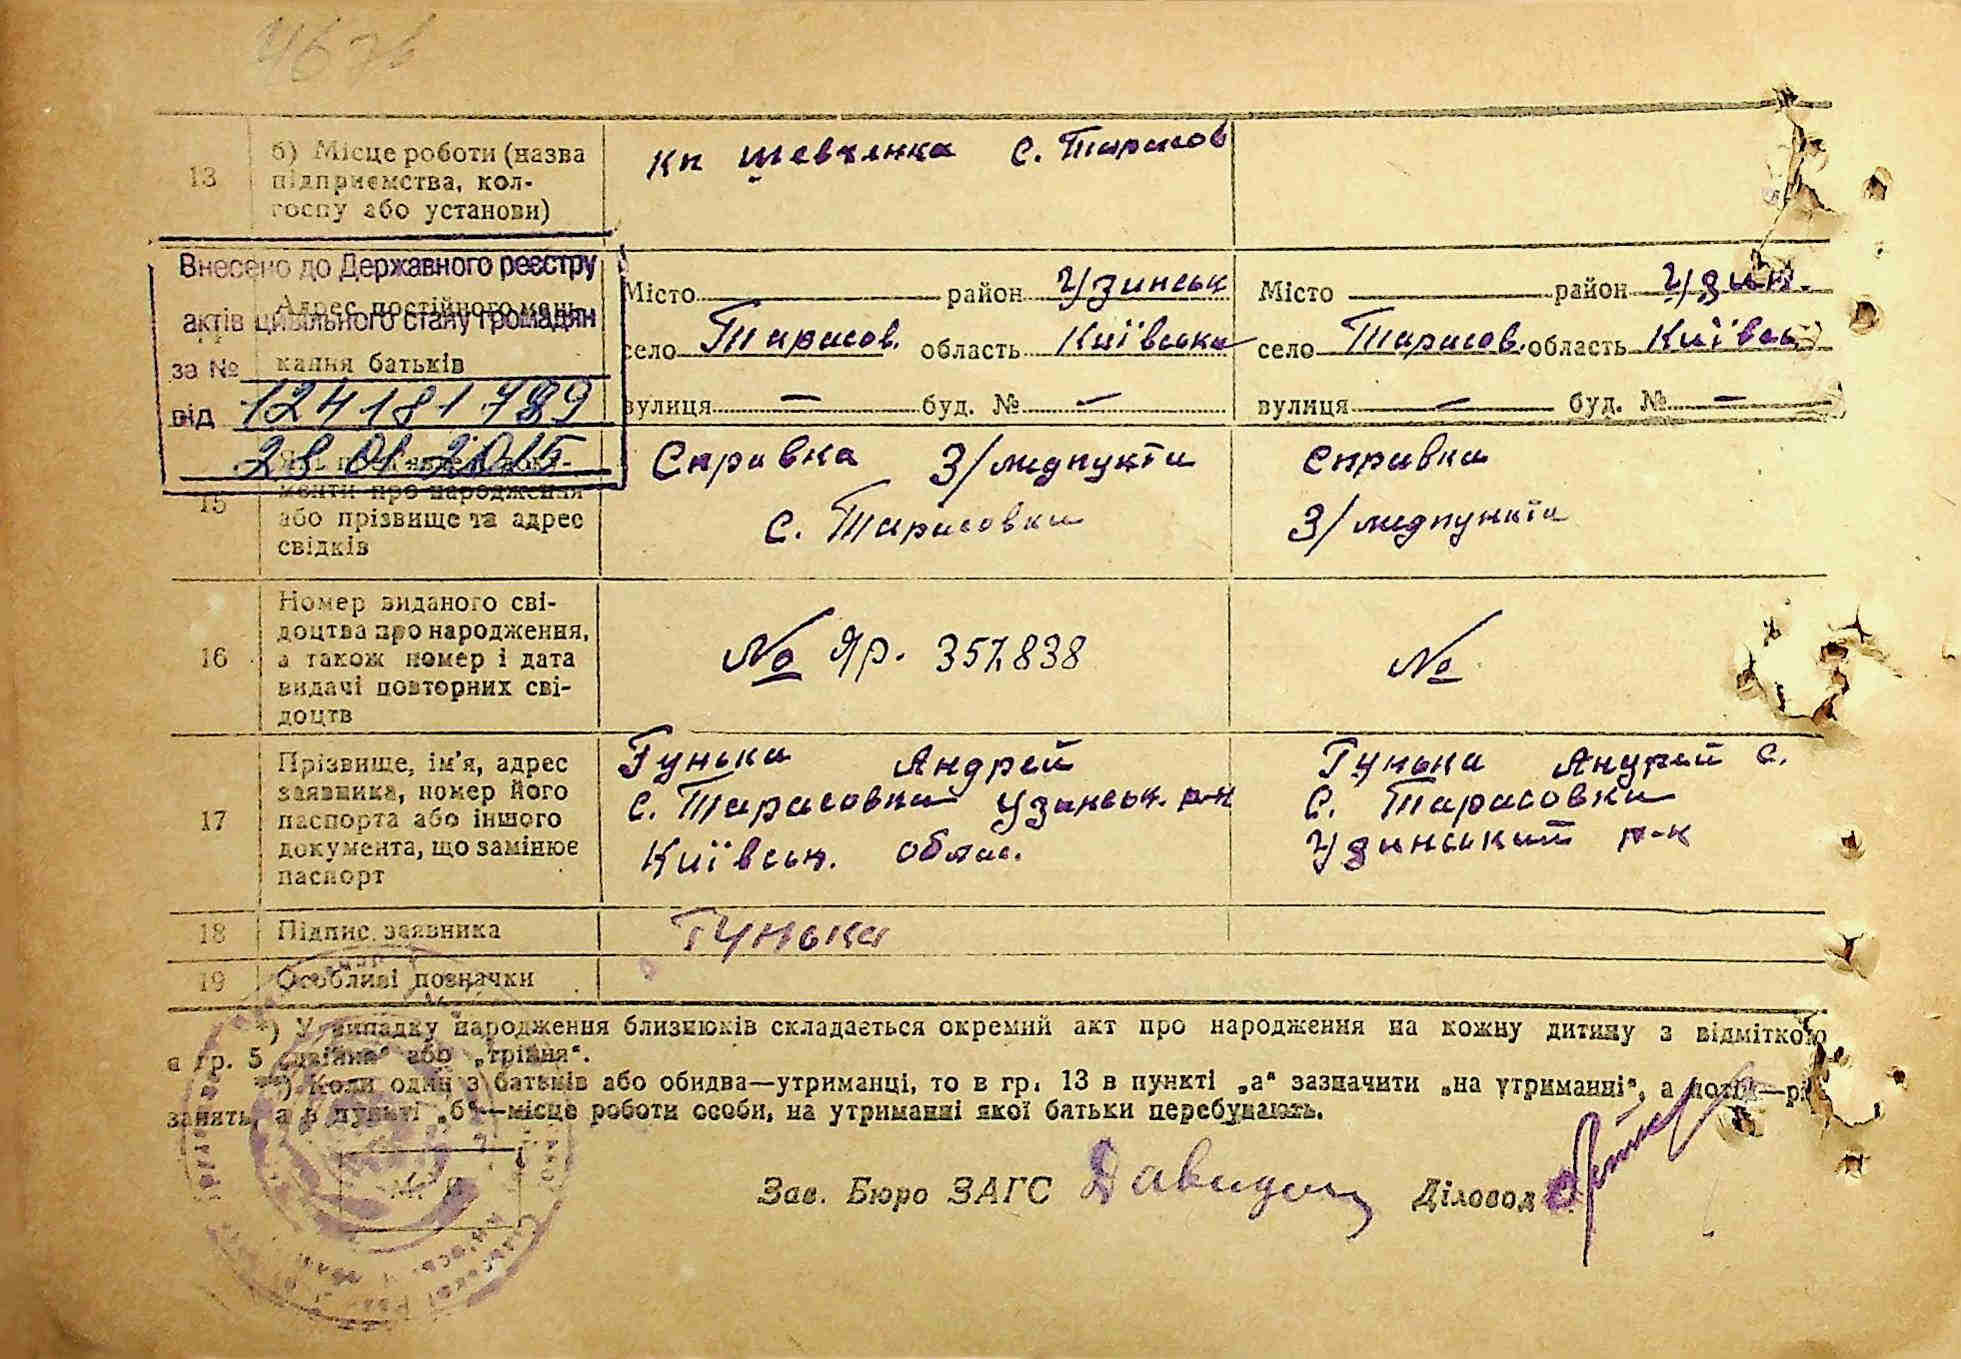 13
б) Місце роботи (назва
підприємства, кол-
госпу або установи)
кп Шевченка с. Тарасов
Внесено до Державного реєстру
актів цивільного стану громадян
за №
124181789
від
28 01 2015
Адрес постійного меш-
кання батьків
Місто район Узинськ
село Тарасов. область Київська
вулиця — буд. № —
Місто район Узин.
село Тарасов. область Київсь
вулиця — буд. № —
15
менти про народження
або прізвище та адрес
свідків
Справка З/медпункта
с. Тарасовка
Справка
З/медпункта
16
Номер виданого сві-
доцтва про народження,
а також номер і дата
видачі повторних сві-
доцтв
№ Яр. 357838
№
17
Прізвище, ім'я, адрес
заявника, номер його
паспорта або іншого
документа, що замінює
паспорт
Гунька Андрей
с. Тарасовка Узинськ. р-н
Київськ. облас.
Гунька Андрей С.
с. Тарасовка
Узинський р-н
18
Підпис заявника
Гунька
19
Особливі позначки
*) У випадку народження близнюків складається окремий акт про народження на кожну дитину з відміткою
в гр. 5 „двійня" або „трійня".
**) Коли один з батьків або обидва—утриманці, то в гр. 13 в пункті „а" зазначити „на утриманні", а потім—рід
занять, а в пункті „б"—місце роботи особи, на утриманні якої батьки перебувають.
Зав. Бюро ЗАГС
Діловод